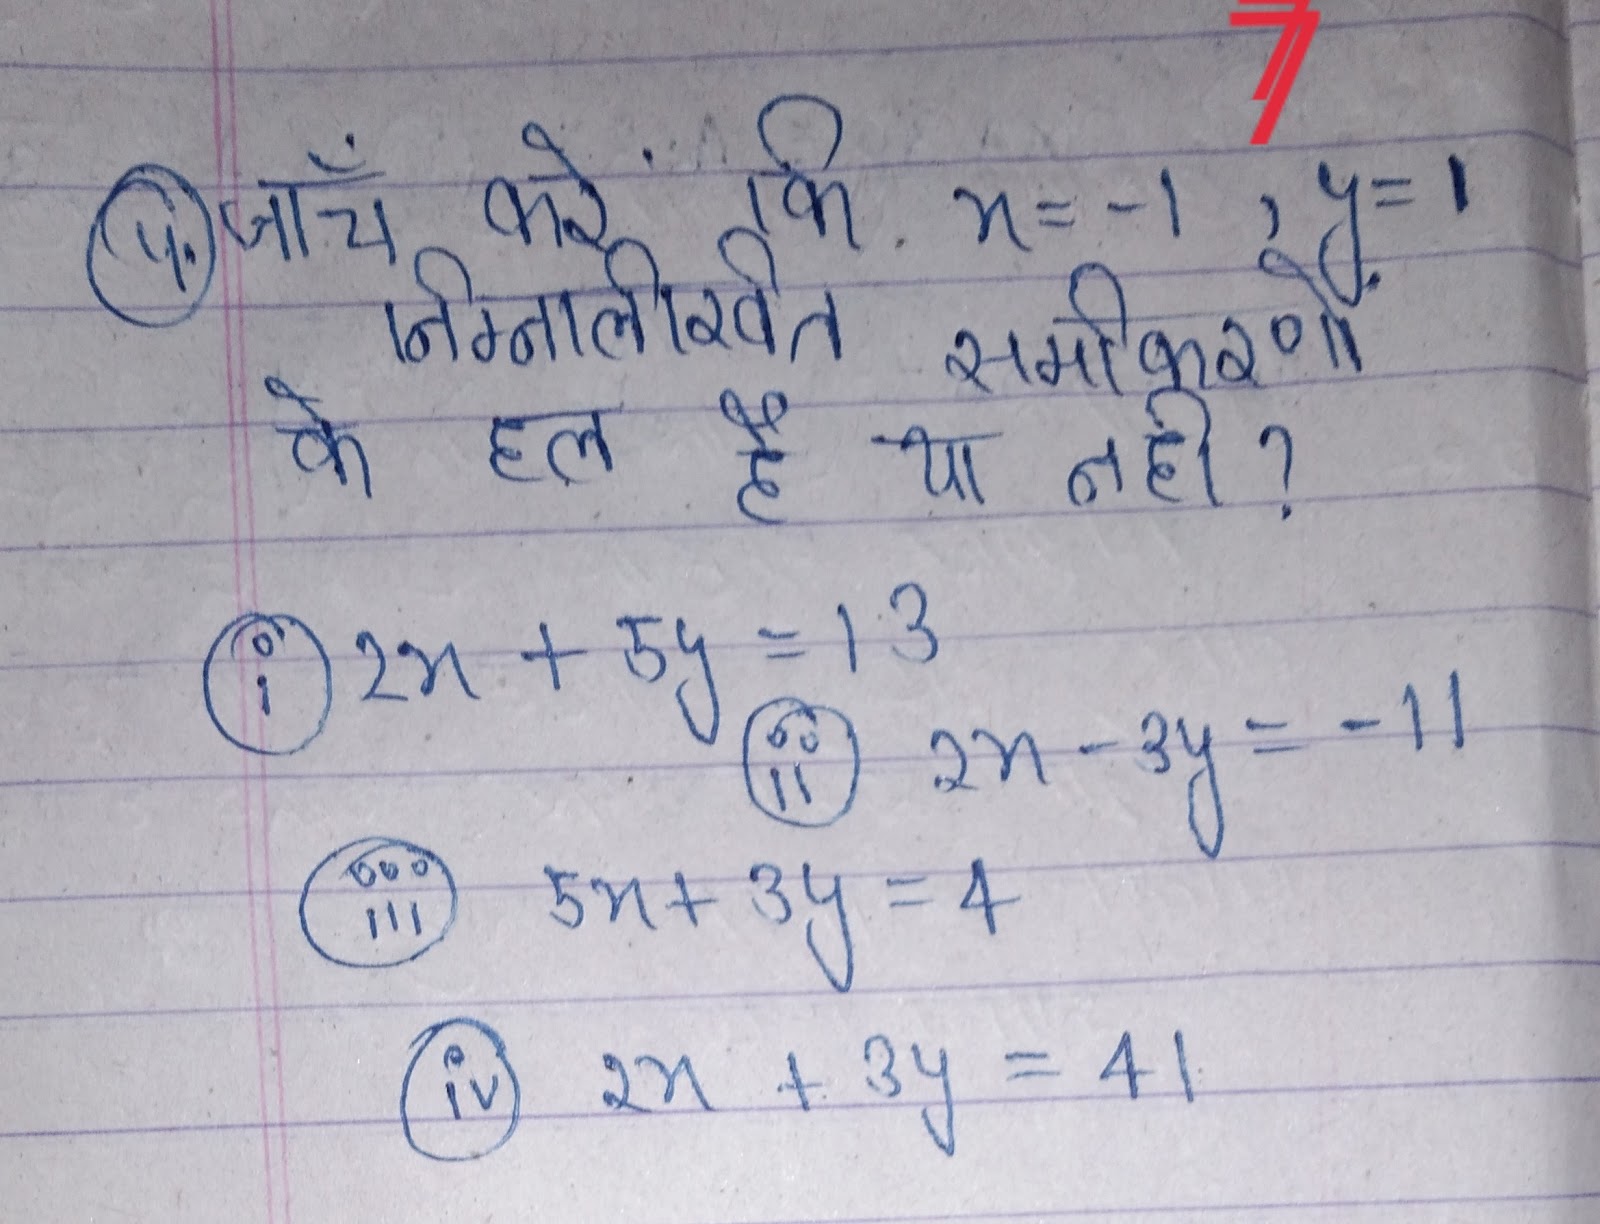 7
५. जाँच करें कि x = -1 , y = 1
निम्नलीखित समीकरणों
के हल हैं या नहीं ?
i 2x + 5y = 13
ii 2x - 3y = -11
iii 5x + 3y = 4
iv 2x + 3y = 41